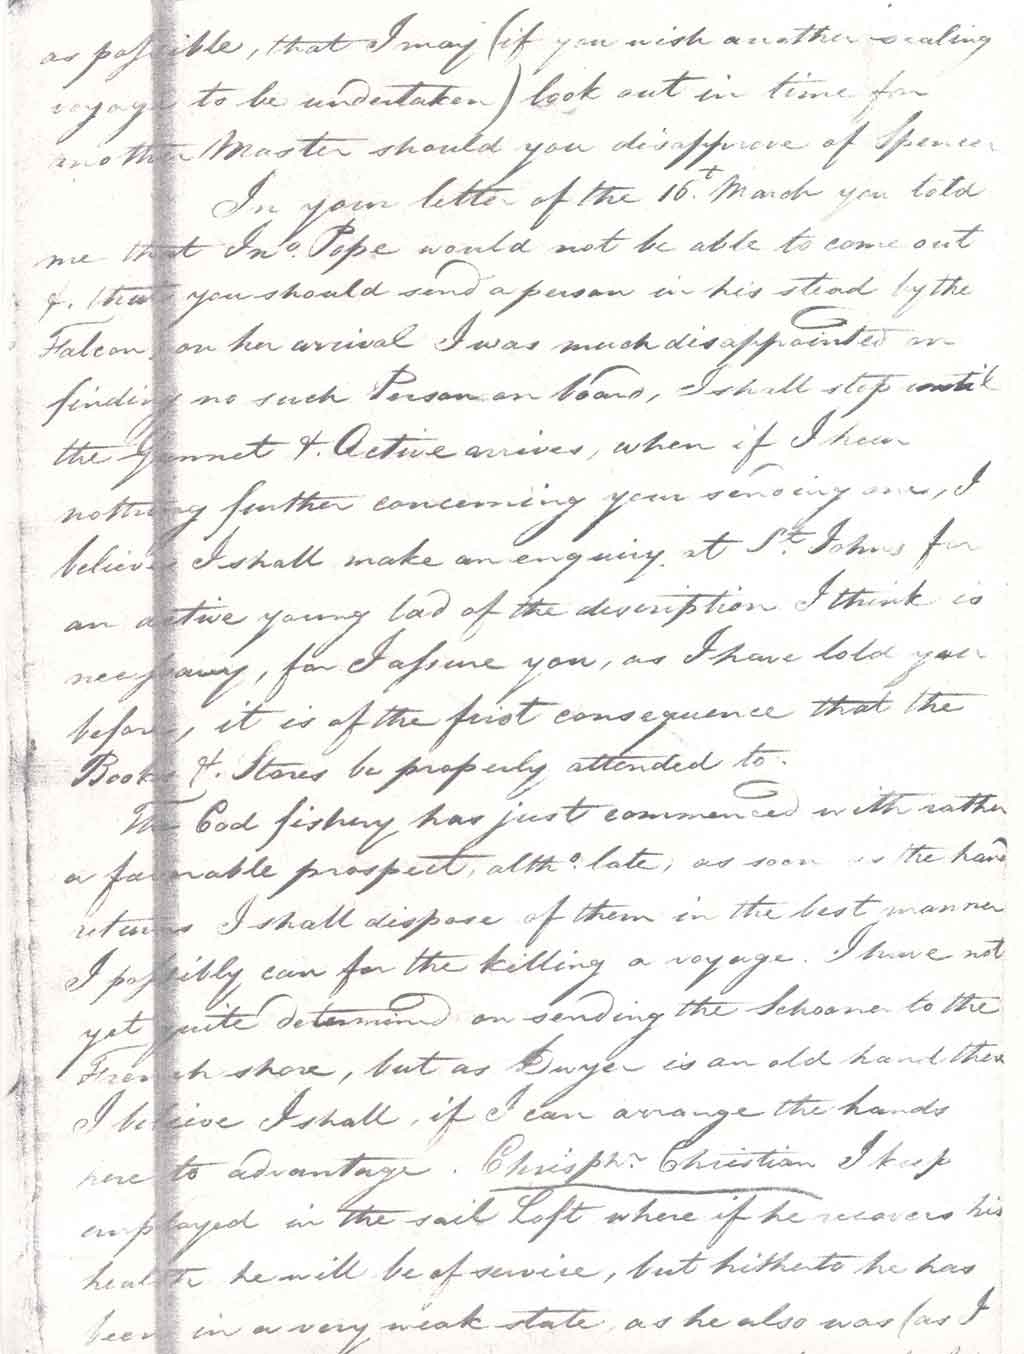 as possible, that I may (if you wish another sealing
voyage to be undertaken) look out in time for
another Master should you disapprove of Spencer
In your letter of the 16t. March you told
me that Jno. Pope would not be able to come out
&. that you should send a person in his stead by the
Falcon, on her arrival I was much disappointed on
finding no such Person on board, I shall stop until
the Gannet &. Active arrives, when if I hear
nothing further concerning your sending one, I
believe I shall make an enquiry at St. Johns for
an active young lad of the description I think is
necessary, for I assure you, as I have told you
before, it is of the first consequence that the
Books &. Stores be properly attended to.
The Cod fishery has just commenced with rather
a favorable prospect, altho. late, as soon as the hands
returns I shall dispose of them in the best manner
I possibly can for the killing a voyage. I have not
yet quite determined on sending the Schooner to the
French shore, but as Dwyer is an old hand there
I believe I shall, if I can arrange the hands
here to advantage. Chrisphr. Christian I keep
employed in the sail Loft where if he recovers his
health he will be of service, but hitherto he has
been in a very weak state as he also was (as I